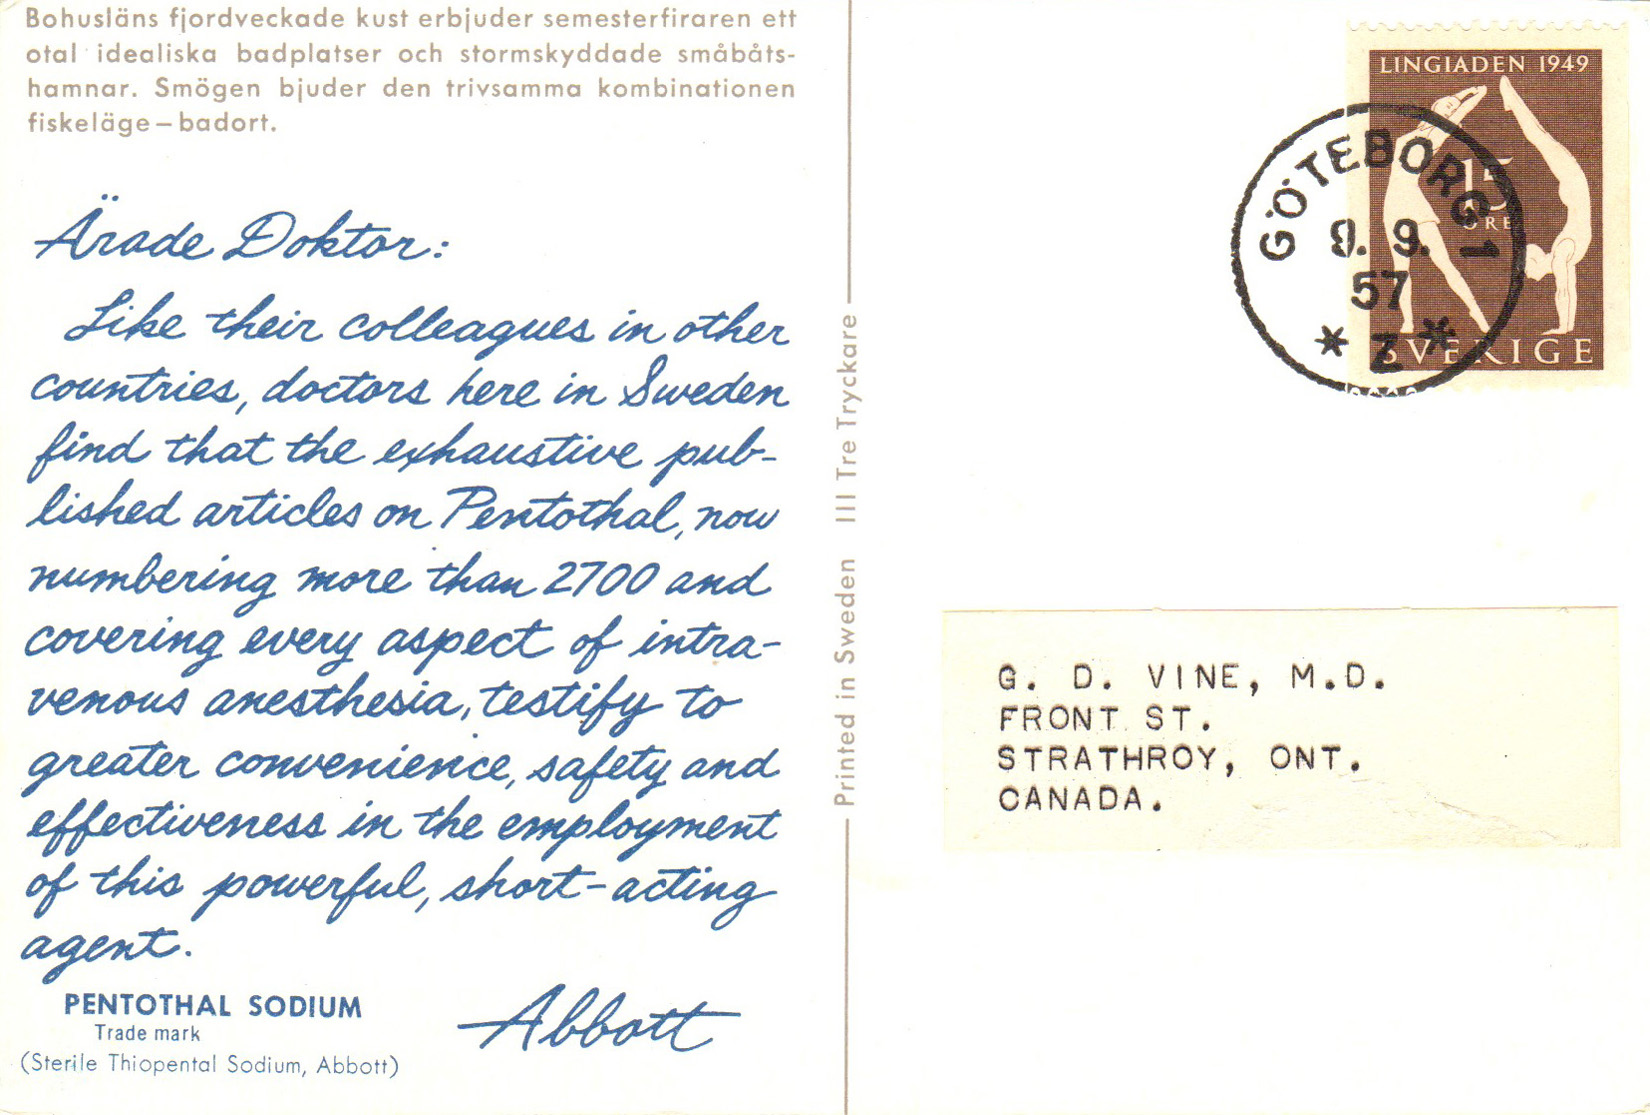 Bohusläns fjordveckade kust erbjuder semesterfiraren ett
otal idealiska badplatser och stormskyddade småbåts-
hamnar. Smögen bjuder den trivsamma kombinationen
fiskeläge – badort.
Ärade Doktor:
Like their colleagues in other
countries, doctors here in Sweden
find that the exhaustive pub-
lished articles on Pentothal, now
numbering more than 2700 and
covering every aspect of intra-
venous anesthesia, testify to
greater convenience, safety and
effectiveness in the employment
of this powerful, short-acting
agent.
Abbott
PENTOTHAL SODIUM
Trade mark
(Sterile Thiopental Sodium, Abbott)
Printed in Sweden III Tre Tryckare
LINGIADEN 1949
15
ÖRE
SVERIGE
GÖTEBORG 1
9. 9.
57
* Z *
G. D. VINE, M.D.
FRONT ST.
STRATHROY, ONT.
CANADA.